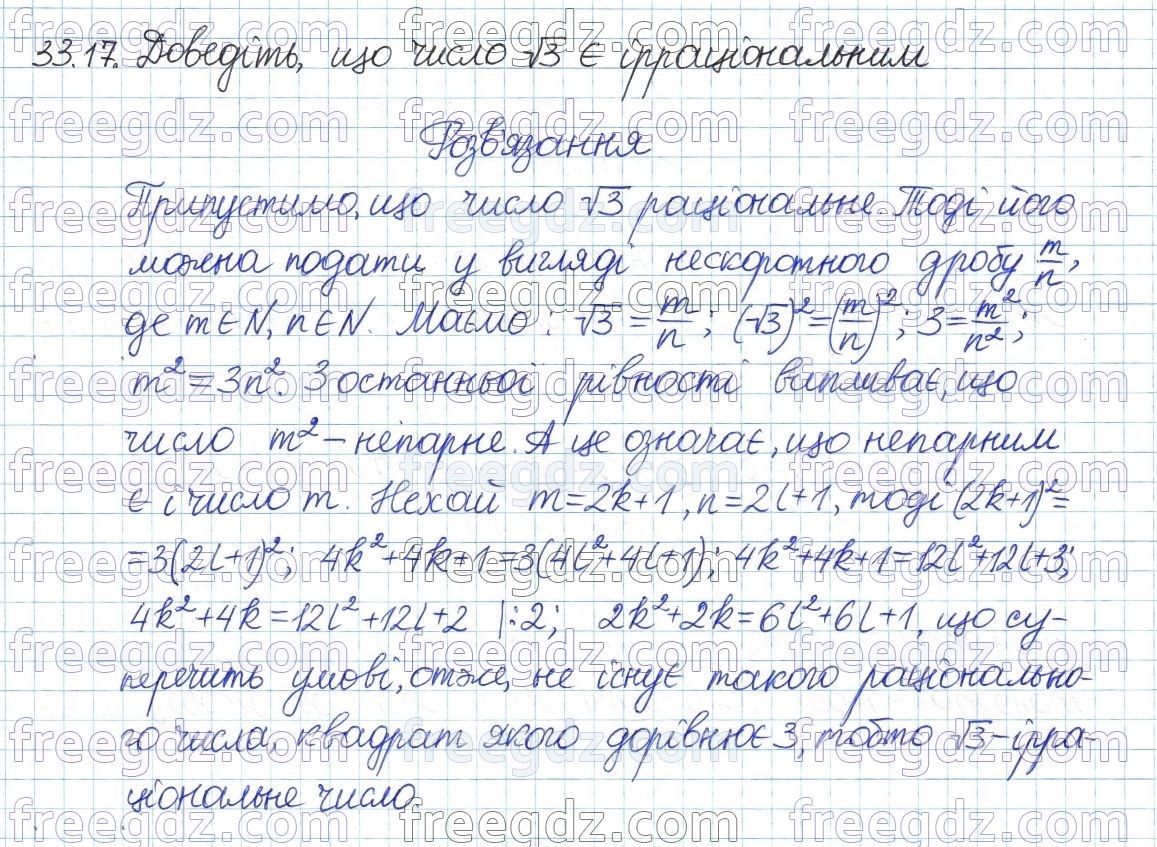 33.17. Доведіть, що число √3 є ірраціональним
Розв'язання
Припустимо, що число √3 раціональне. Тоді його
можна подати у вигляді нескоротного дробу m/n,
де m∈N, n∈N. Маємо: √3 = m/n; (√3)² = (m/n)²; 3 = m²/n²;
m² = 3n². З останньої рівності випливає, що
число m² – непарне. А це означає, що непарним
є і число m. Нехай m=2k+1, n=2l+1, тоді (2k+1)² =
=3(2l+1)²; 4k²+4k+1=3(4l²+4l+1); 4k²+4k+1=12l²+12l+3;
4k²+4k=12l²+12l+2 |:2; 2k²+2k=6l²+6l+1, що су-
перечить умові, отже, не існує такого раціонально-
го числа, квадрат якого дорівнює 3, тобто √3 – ірра-
ціональне число.
freegdz.com